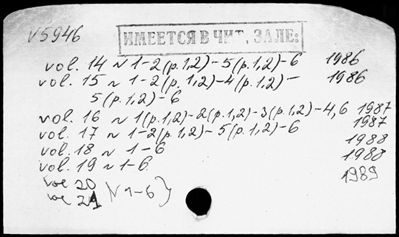 V5946
ИМЕЕТСЯ В ЧИТ. ЗАЛЕ:
vol. 14 N 1-2(p.1,2)-5(p.1,2)-6 1986
vol. 15 N 1-2(p.1,2)-4(p.1,2)- 1986
5(p.1,2)-6
vol. 16 N 1(p.1,2)-2(p.1,2)-3(p.1,2)-4,6 1987
vol. 17 N 1-2(p.1,2)-5(p.1,2)-6 1987
vol. 18 N 1-6 1988
vol. 19 N 1-6 1988
vol 20 1989
vol 21 (N 1-6)}